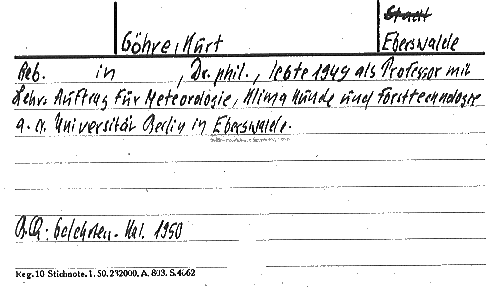 Stadt
Göhre, Kurt
Eberswalde
Geb. in , Dr. phil., lebte 1949 als Professor mit
Lehr-Auftrag für Meteorologie, Klimakunde und Forsttechnologie
a. d. Universität Berlin in Eberswalde.
B.Q.: Gelehrten-Kal. 1950
Reg. 10 Stichnote. 1. 50. 232000. A. 803. S. 4662